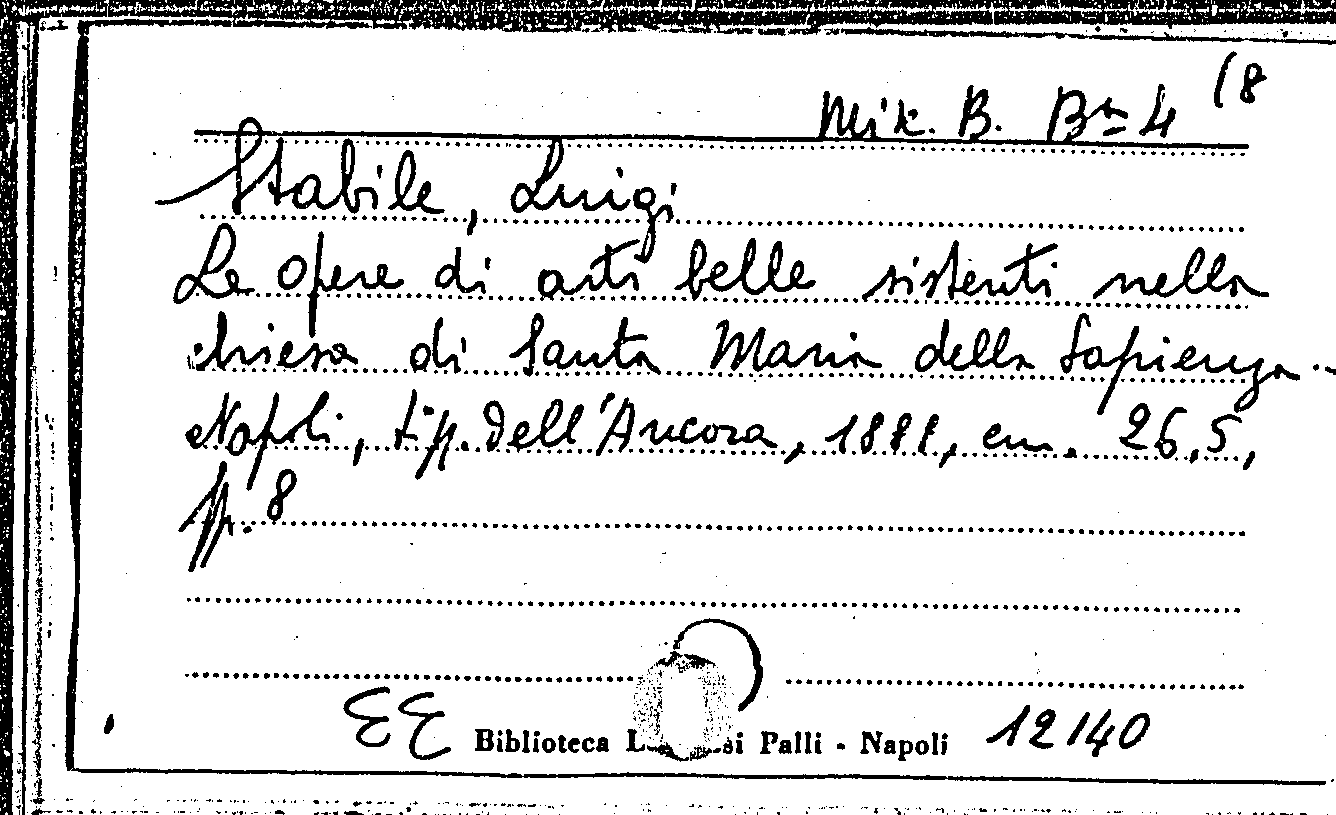 Mik. B. Bta 4 (8
Stabile, Luigi
Le opere di arti belle sistenti nella
chiesa di Santa Maria della Sapienza.-
Napoli, tip. dell'Ancora, 1881, cm. 26,5,
pp. 8
EE Biblioteca L si Palli - Napoli 12140